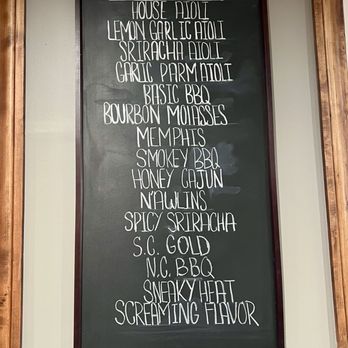 HOUSE AIOLI
LEMON GARLIC AIOLI
SRIRACHA AIOLI
GARLIC PARM AIOLI
BASIC BBQ
BOURBON MOLASSES
MEMPHIS
SMOKEY BBQ
HONEY CAJUN
N'AWLINS
SPICY SRIRACHA
S.C. GOLD
N.C. BBQ
SNEAKY HEAT
SCREAMING FLAVOR